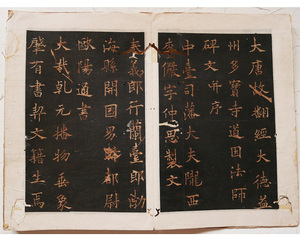 大唐故翻經大德益
州多寶寺道因法師
碑文并序
中臺司藩大夫隴西
李儼字仲思製文
奉義郎行蘭臺郎渤
海縣開國男騎都尉
歐陽通書
大哉乾元播物垂象
肇有書契文籍生焉